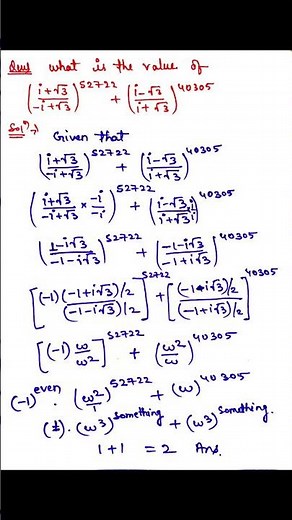 Que what is the value of
((i+√3)/(-i+√3))^52722 + ((i-√3)/(i+√3))^40305
Solⁿ→ Given that
((i+√3)/(-i+√3))^52722 + ((i-√3)/(i+√3))^40305
((i+√3)/(-i+√3) × -i/-i)^52722 + ((i-√3, i)/(i+√3 i))^40305
((1-i√3)/(-1-i√3))^52722 + ((-1-i√3)/(-1+i√3))^40305
[(-1)(-1+i√3)/2 / (-1-i√3)/2]^52722 + [(-1-i√3)/2 / (-1+i√3)/2]^40305
[(-1) ω/ω²]^52722 + (ω²/ω)^40305
(-1)^even. (ω²/1)^52722 + (ω)^40305
(1). (ω³)^something + (ω³)^something.
1+1 = 2 Ans.